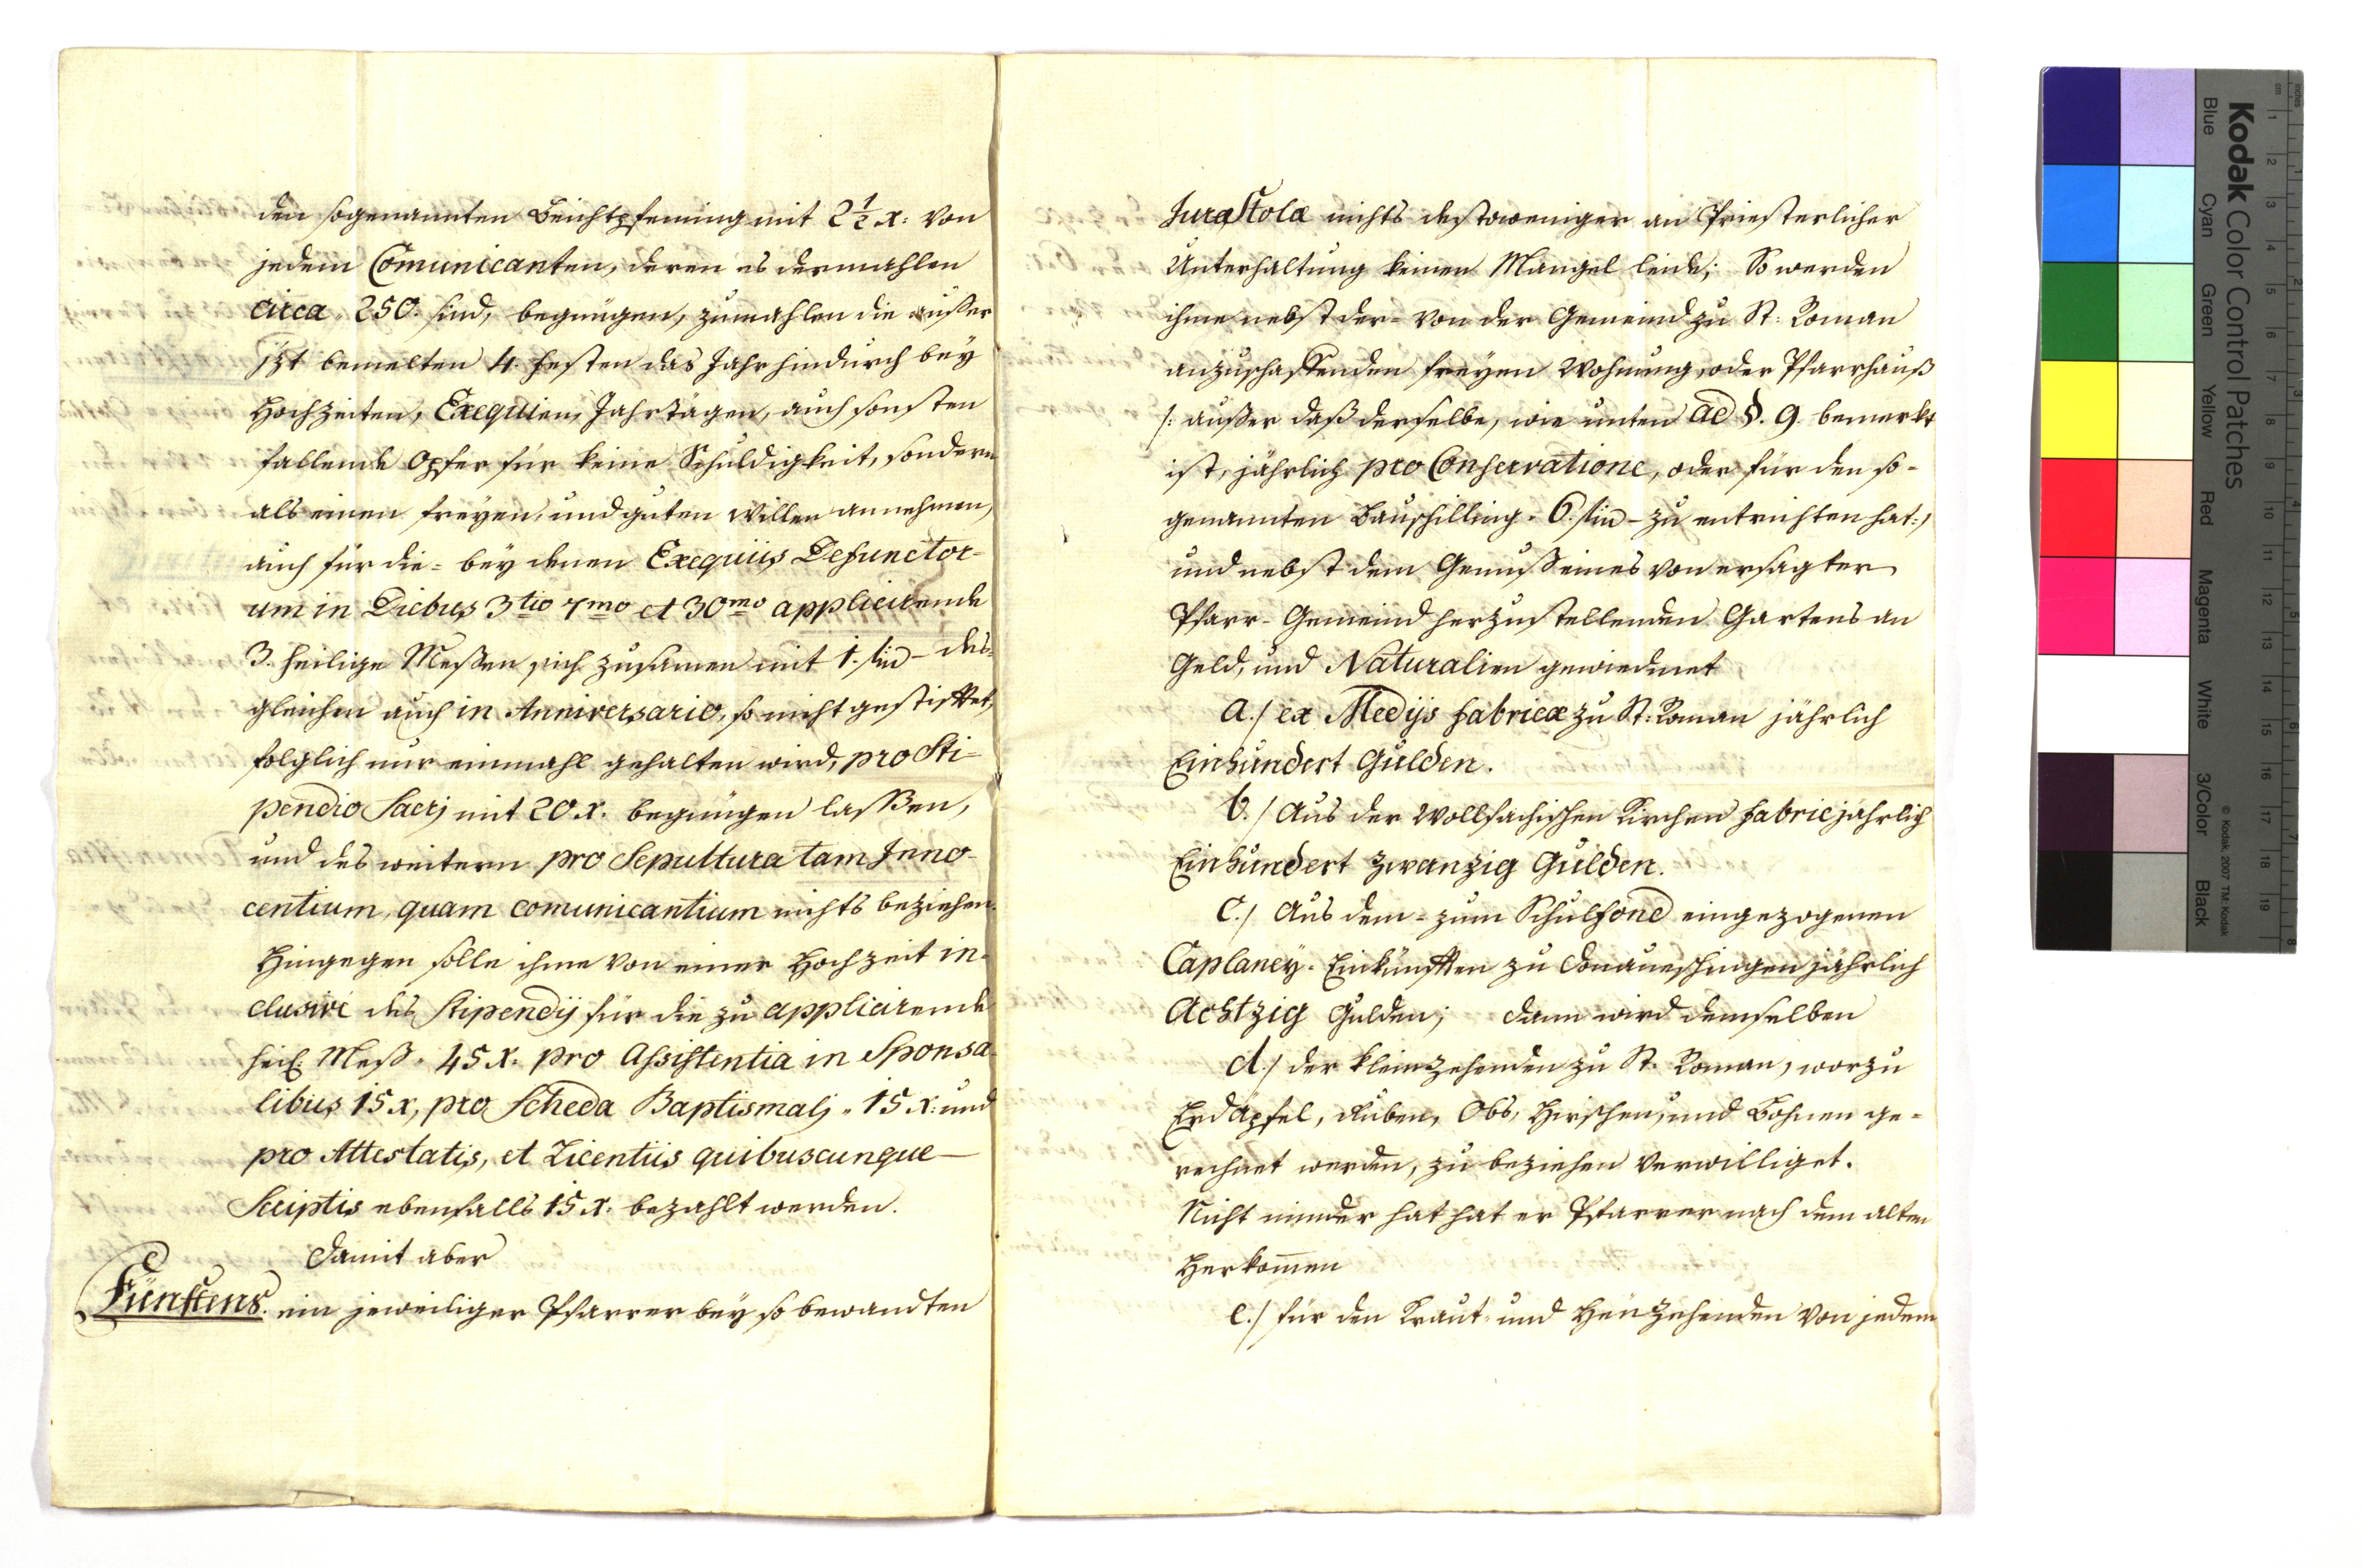 den sogenannten Beichtpfening mit 2½ x: von
jedem Comunicanten, deren es dermahlen
circa 250. sind, begnügen, zumahlen die außer
jzt bemelten 4. Festen das Jahr hindurch bey
Hochzeiten, Exequien, Jahrtägen, auch sonsten
fallende Opfer für keine Schuldigkeit, sondern
als einen freyen, und guten Willen annehmen,
auch für die= bey denen Exequiis Defunctor-
um in Diebus 3tio 7mo et 30mo applicirende
3. heilige Meßen sich zusamen mit 1. fl - des-
gleichen auch in Anniversario, so nicht gestifftet,
folglich nur einmahl gehalten wird, pro Sti-
pendio Sacrj mit 20 x. begnügen laßen,
und des weitern pro Sepultura tam Inno-
centium, quam comunicantium nichts beziehen.
Hingegen solle ihme von einer Hochzeit in-
clusive des Stipendij für die zu applicirende
heil. Meß. 45 x. pro Assistentia in Sponsa-
libus 15 x, pro Scheda Baptismalj. 15 x: und
pro Attestatis, et Licentiis quibuscunque
Scriptis ebenfalls 15 x. bezahlt werden.
Damit aber
Fünftens. ein jeweiliger Pfarrer bey so bewandten
Jura Stolæ nichts destoweniger an Priesterlicher
Unterhaltung keinen Mangel leide; So werden
ihme nebst der= von der Gemeind zu St: Roman
anzuschaffenden freyen Wohnung, oder Pfarrhauß
/: außer daß derselbe, wie unten ad §. 9. bemerkt
ist, jährlich pro Conservatione, oder für den so-
genannten Bauschilling. 6. fl - zu entrichten hat:/
und nebst dem Genuß eines von ersagter
Pfarr-Gemeind herzustellenden Gartens an
Geld, und Naturalien gewiedmet
a./ ex Medijs fabricæ zu St: Roman jährlich
Einhundert Gulden.
b./ Aus der Wolfachischen Kirchen fabric jährlich
Einhundert zwanzig Gulden.
c./ Aus dem= zum Schulfond eingezogenen
Caplaney-Einkünfften zu Donaueschingen jährlich
Achtzig Gulden; dann wird demselben
d./ der kleinzehenden zu St. Roman, worzu
Erdäpfel, Ruben, Obs, Hirschen, und Bohnen ge-
rechnet werden, zu beziehen verwilliget.
Nicht minder hat hat er Pfarrer nach dem alten
Herkom̄en
e./ für den Kraut- und Heuzehenden von jedem
Kodak Color Control Patches
Blue Cyan Green Yellow Red Magenta White 3/Color Black
© Kodak, 2007 TM: Kodak
inches 1 2 3 4 5 6 7 8
cm 1 2 3 4 5 6 7 8 9 10 11 12 13 14 15 16 17 18 19